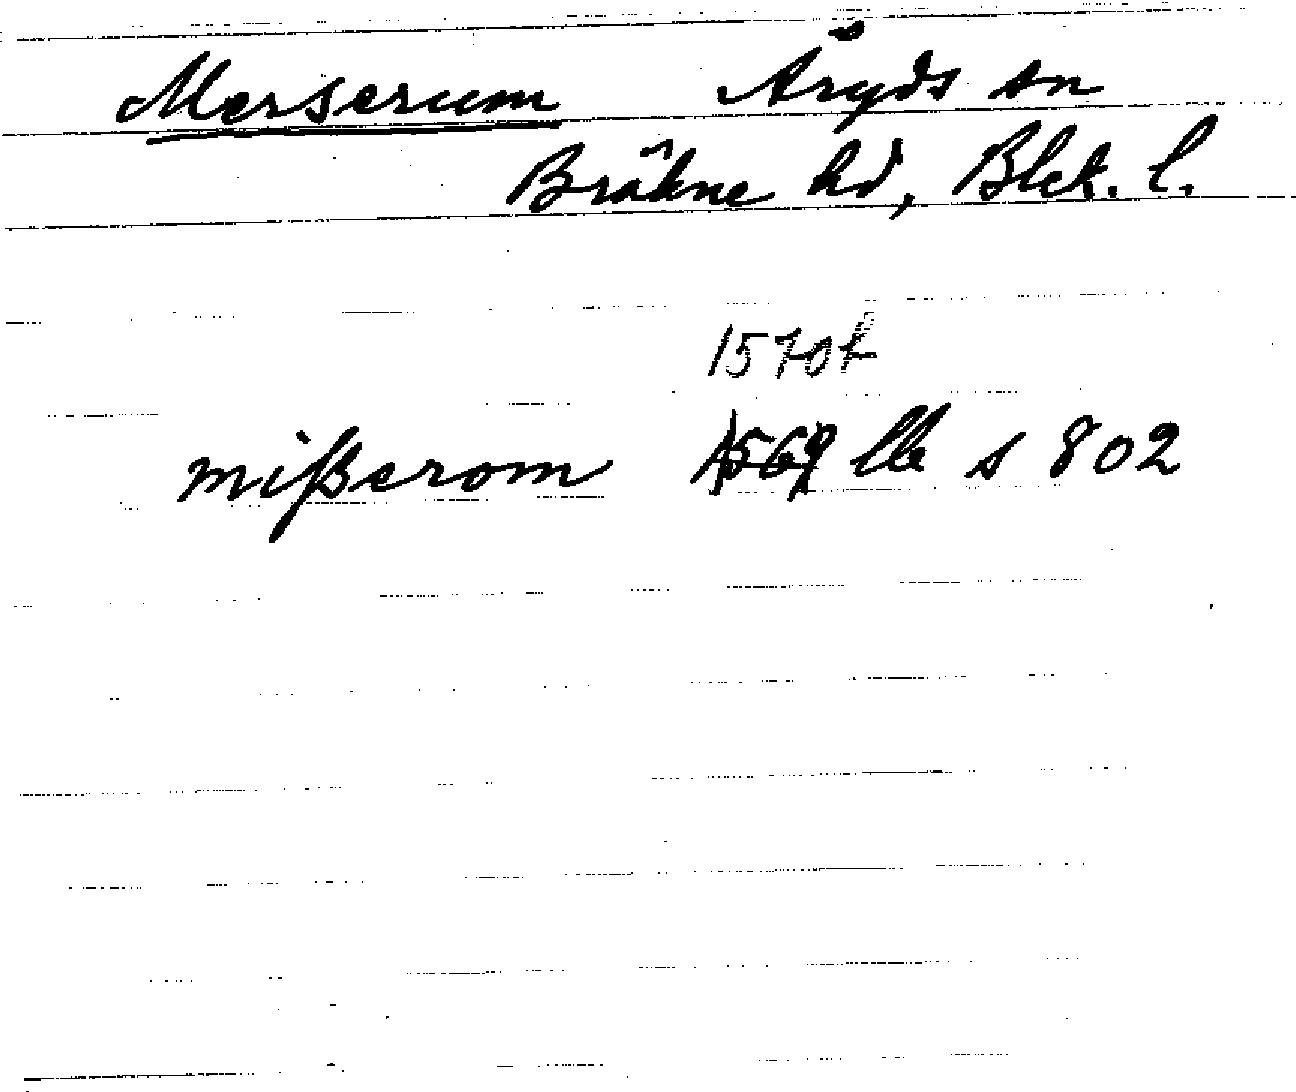 Merserum Åryds sn
Bräkne hd, Blek. l.
1570t
mißerom 1569 llb s 802